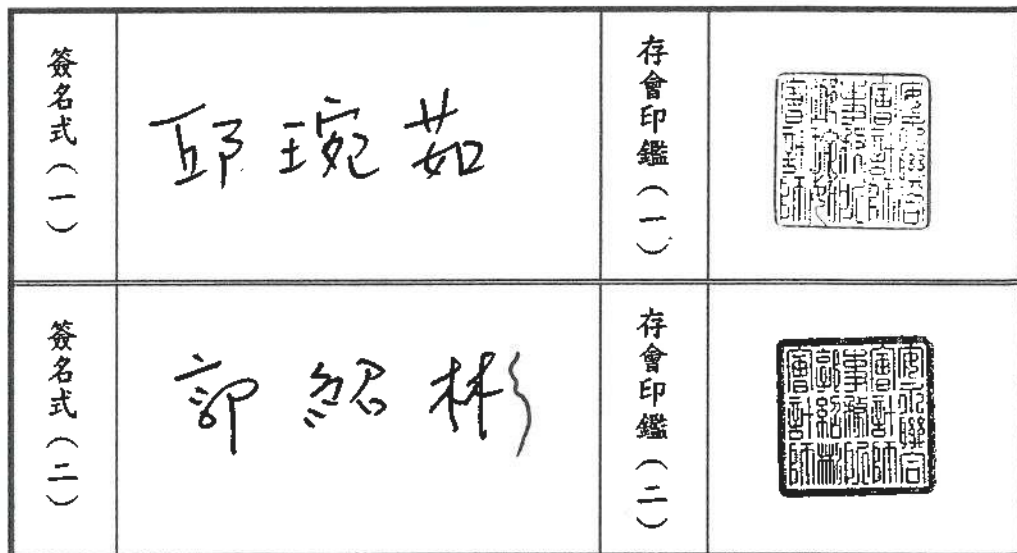 簽名式（一）
邱琬茹
存會印鑑（一）
安永聯合
會計師
事務所
邱琬茹
會計師
簽名式（二）
郭紹彬
存會印鑑（二）
安永聯合
會計師
事務所
郭紹彬
會計師